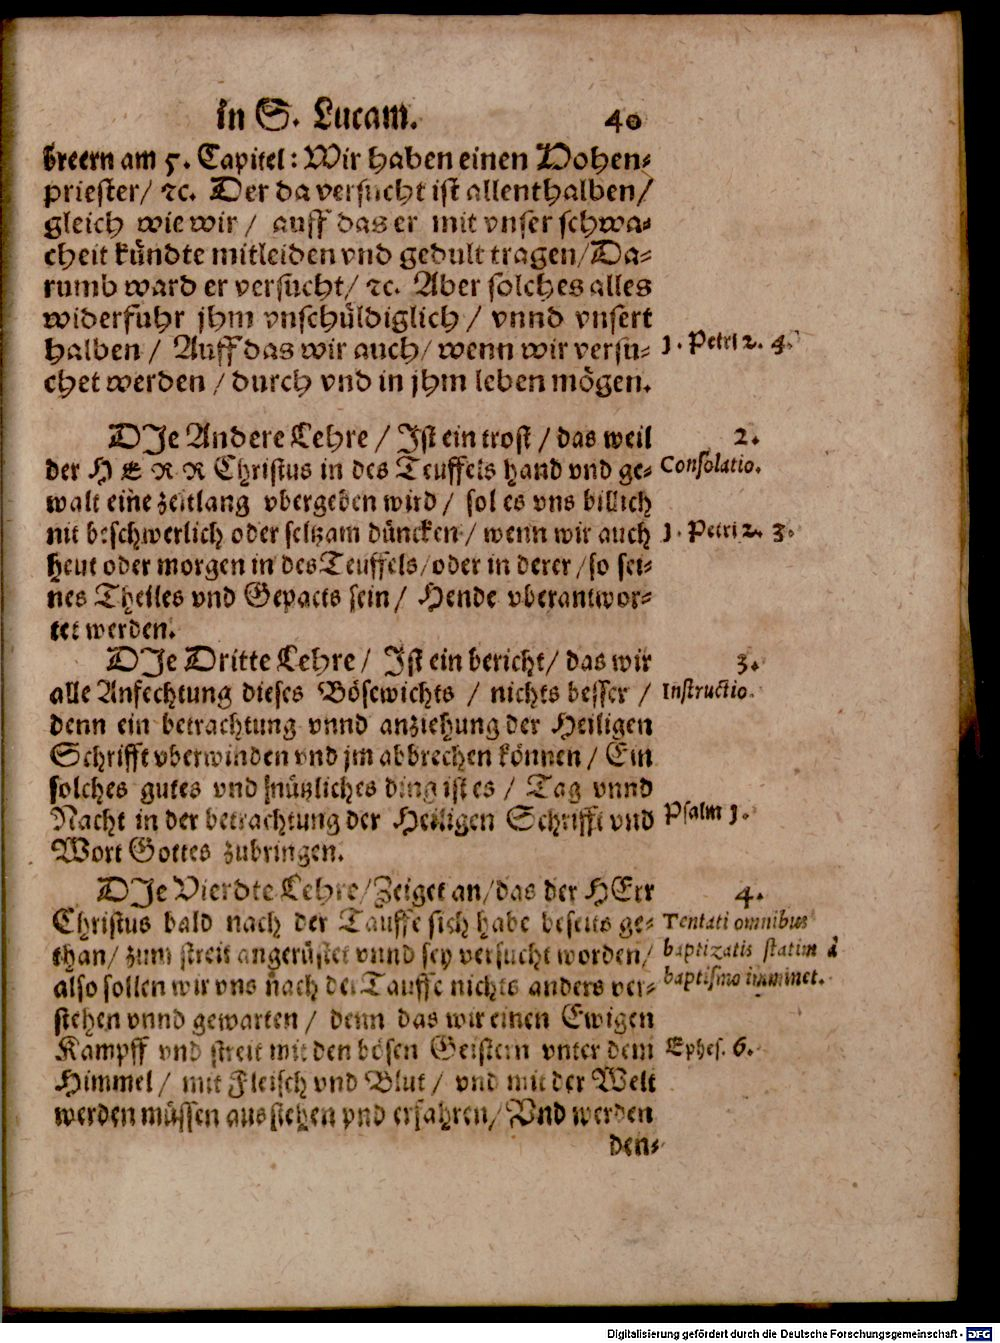 in S. Lucam. 40
breern am 5. Capitel: Wir haben einen Hohen-
priester/ ꝛc. Der da versucht ist allenthalben/
gleich wie wir / auff das er mit vnser schwa-
cheit kündte mitleiden vnd gedult tragen/Da-
rumb ward er versucht/ ꝛc. Aber solches alles
widerfuhr jhm vnschüldiglich / vnnd vnsert
halben / Auff das wir auch/ wenn wir versu-
chet werden / durch vnd in jhm leben mögen.
1. Petri 2. 4.
DJe Andere Lehre / Jst ein trost / das weil
der HERR Christus in des Teuffels hand vnd ge-
walt eine zeitlang vbergeben wird / sol es vns billich
nit beschwerlich oder seltzam düncken / wenn wir auch
heut oder morgen in des Teuffels/oder in derer/so sei-
nes Theiles vnd Gepacts sein / Hende vberantwor-
tet werden.
2.
Consolatio.
1. Petri 2. 3.
DJe Dritte Lehre / Jst ein bericht/ das wir
alle Anfechtung dieses Bösewichts / nichts besser /
denn ein betrachtung vnnd anziehung der Heiligen
Schrifft vberwinden vnd jm abbrechen können / Ein
solches gutes vnd nützliches ding ist es / Tag vnnd
Nacht in der betrachtung der Heiligen Schrifft vnd
Wort Gottes zubringen.
3.
Instructio.
Psalm 1.
DJe Vierdte Lehre/Zeiget an/das der HErr
Christus bald nach der Tauffe sich habe beseits ge-
than/ zum streit angerüstet vnnd sey versucht worden/
also sollen wir vns nach der Tauffe nichts anders ver-
stehen vnnd gewarten / denn das wir einen Ewigen
Kampff vnd streit mit den bösen Geistern vnter dem
Himmel / mit Fleisch vnd Blut / vnd mit der Welt
werden müssen ausstehen vnd erfahren/ Vnd werden
4.
Tentati omnibus
baptizatis statim à
baptismo imminet.
Ephes. 6.
den-
Digitalisierung gefördert durch die Deutsche Forschungsgemeinschaft - DFG